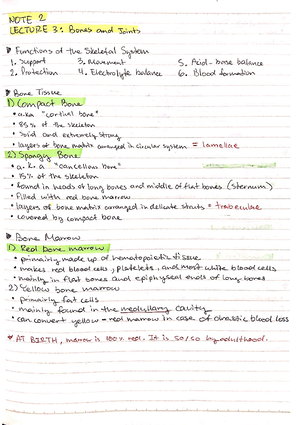 NOTE 2
LECTURE 3: Bones and Joints
Functions of the Skeletal System
1. Support 3. Movement 5. Acid-base balance
2. Protection 4. Electrolyte balance 6. Blood formation
Bone Tissue
1) Compact Bone
• a.k.a "cortical bone"
• 85% of the skeleton
• Solid and extremely strong
• layers of bone matrix arranged in circular systems = lamellae
2) Spongy Bone
• a.k.a "cancellous bone"
• 15% of the skeleton
• found in heads of long bones and middle of flat bones (sternum)
• filled with red bone marrow
• layers of bone matrix arranged in delicate struts = trabeculae
• covered by compact bone
Bone Marrow
1) Red bone marrow
• primarily made up of hematopoietic tissue
• makes red blood cells, platelets, and most white blood cells
• mainly in flat bones and epiphyseal ends of long bones
2) Yellow bone marrow
• primarily fat cells
• mainly found in the medullary cavity
• can convert yellow → red marrow in case of drastic blood loss
* AT BIRTH, marrow is 100% red. It is 50/50 by adulthood.